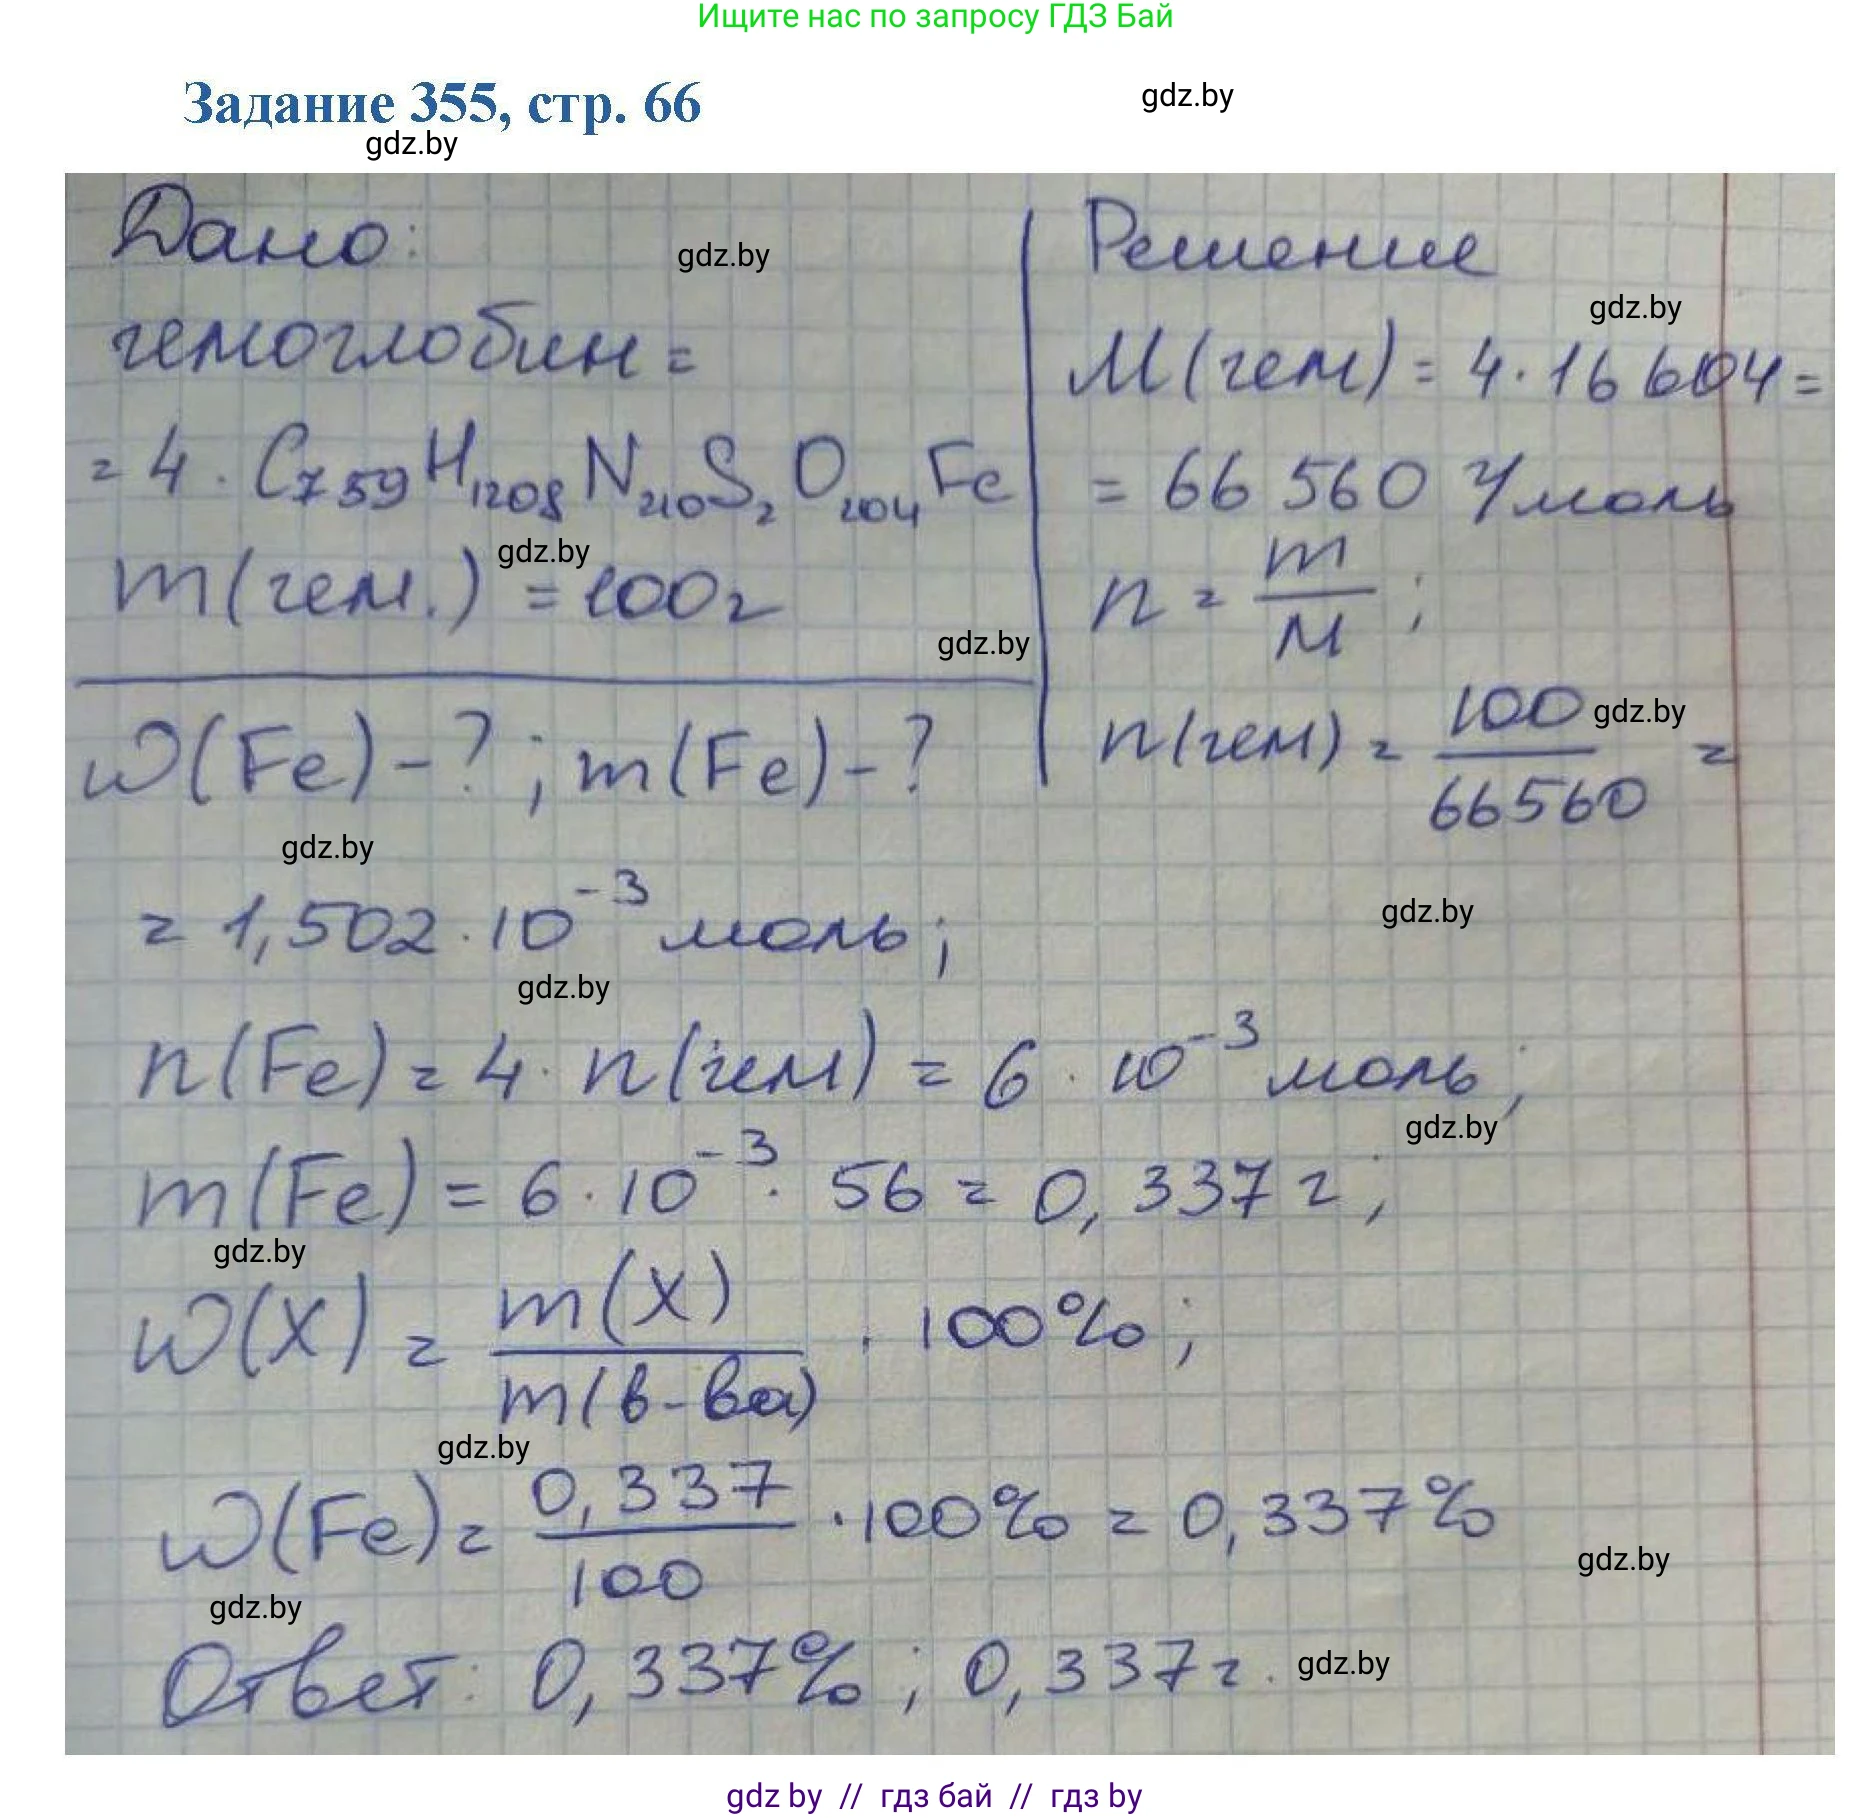 Ищите нас по запросу ГДЗ Бай
Задание 355, стр. 66
gdz.by
gdz.by
Дано:
gdz.by
гемоглобин =
= 4 · C₇₅₉H₁₂₀₈N₂₁₀S₂O₂₀₄Fe
gdz.by
m(гем.) = 100г
gdz.by
ω(Fe)-?; m(Fe)-?
Решение
gdz.by
M(гем) = 4·16 604 =
= 66 560 г/моль
n = m/M ;
n(гем) = 100/66560 =
gdz.by
gdz.by
gdz.by
= 1,502 · 10⁻³ моль;
gdz.by
n(Fe) = 4 · n(гем) = 6 · 10⁻³ моль;
gdz.by
m(Fe) = 6 · 10⁻³ · 56 = 0,337 г;
gdz.by
ω(X) = m(X)/m(в-ва) · 100%;
gdz.by
ω(Fe) = 0,337/100 · 100% = 0,337%
gdz.by
gdz.by
Ответ: 0,337%; 0,337г.
gdz.by
gdz by // гдз бай // гдз by